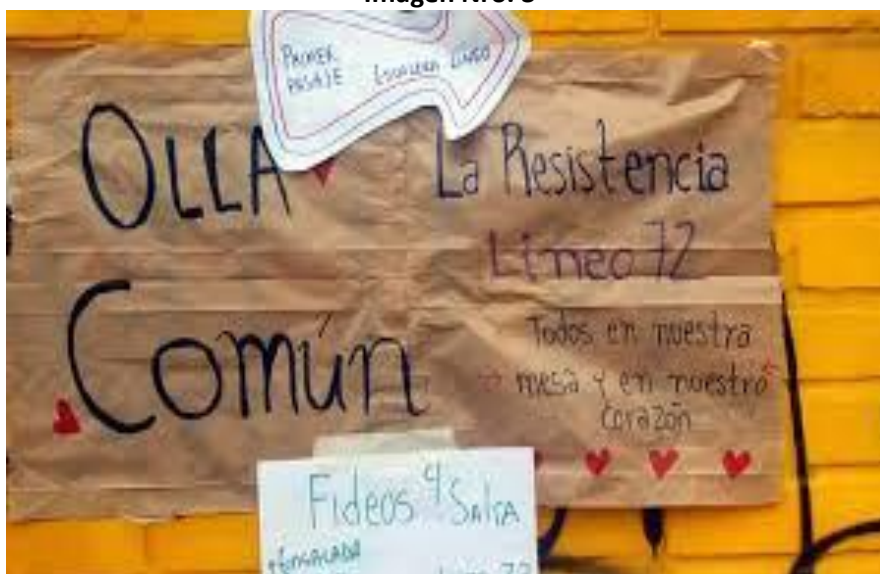 PRIMER
PASAJE ESCALERA LINEO
OLLA
Común
La Resistencia
Lineo 72
Todos en nuestra
mesa y en nuestro
corazón
Fideos y SALSA
+ENSALADA